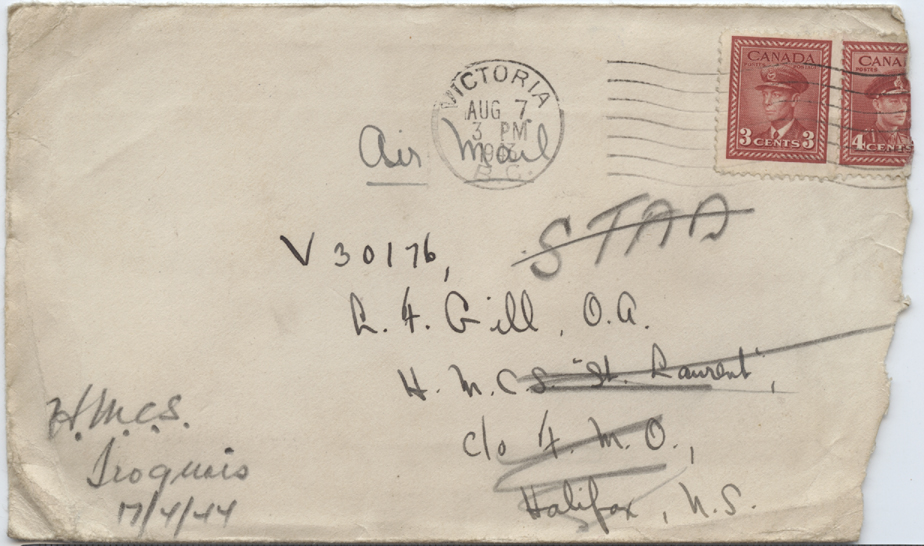 CANADA
POSTES POSTAGE
3 CENTS 3
CANA
POSTES
4 CENTS
VICTORIA
AUG 7
3 PM
B.C.
Air Mail
STAD
V 30176,
L. F. Gill, O.A.
H.M.C.S. "St. Laurent",
c/o F.M.O.,
Halifax, N.S.
H.M.C.S.
Iroquois
17/4/44